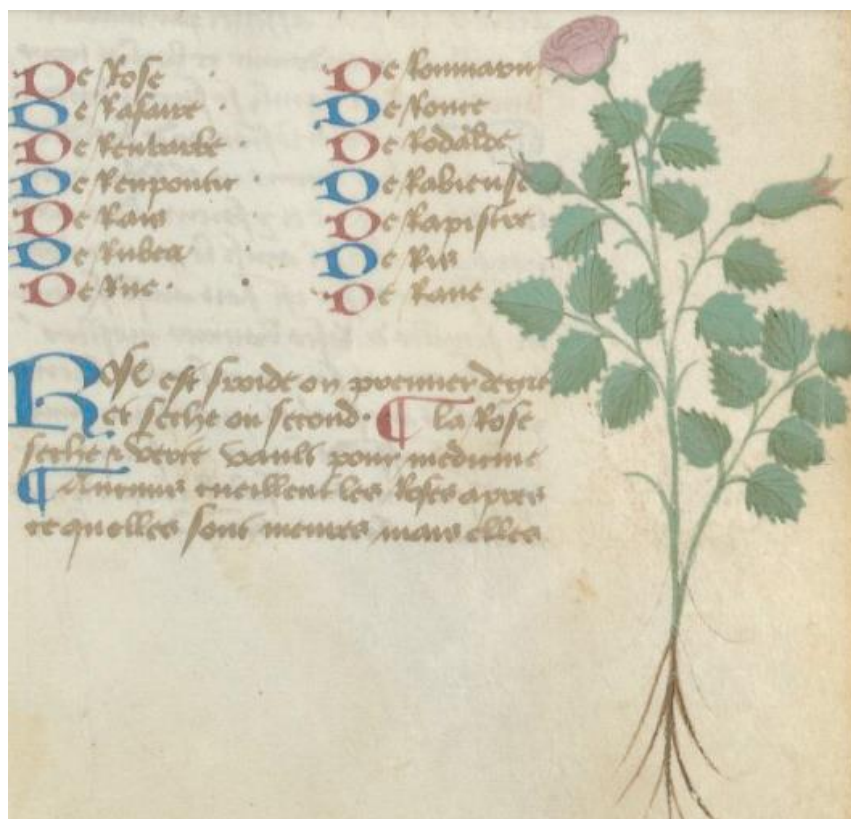 De Rose
De Rafane
De Reubarbe
De Reupontic
De Rais
De Rubea
De Rue
De Rommarin
De Ronce
De
De
De Rapistre
De Ris
De Rane
Rose est froide ou premier degre
et seche ou second. La Rose
seche & verte vault pour medicine
Aucuns cueillent les Roses apres
ce quelles sont meures mais elles